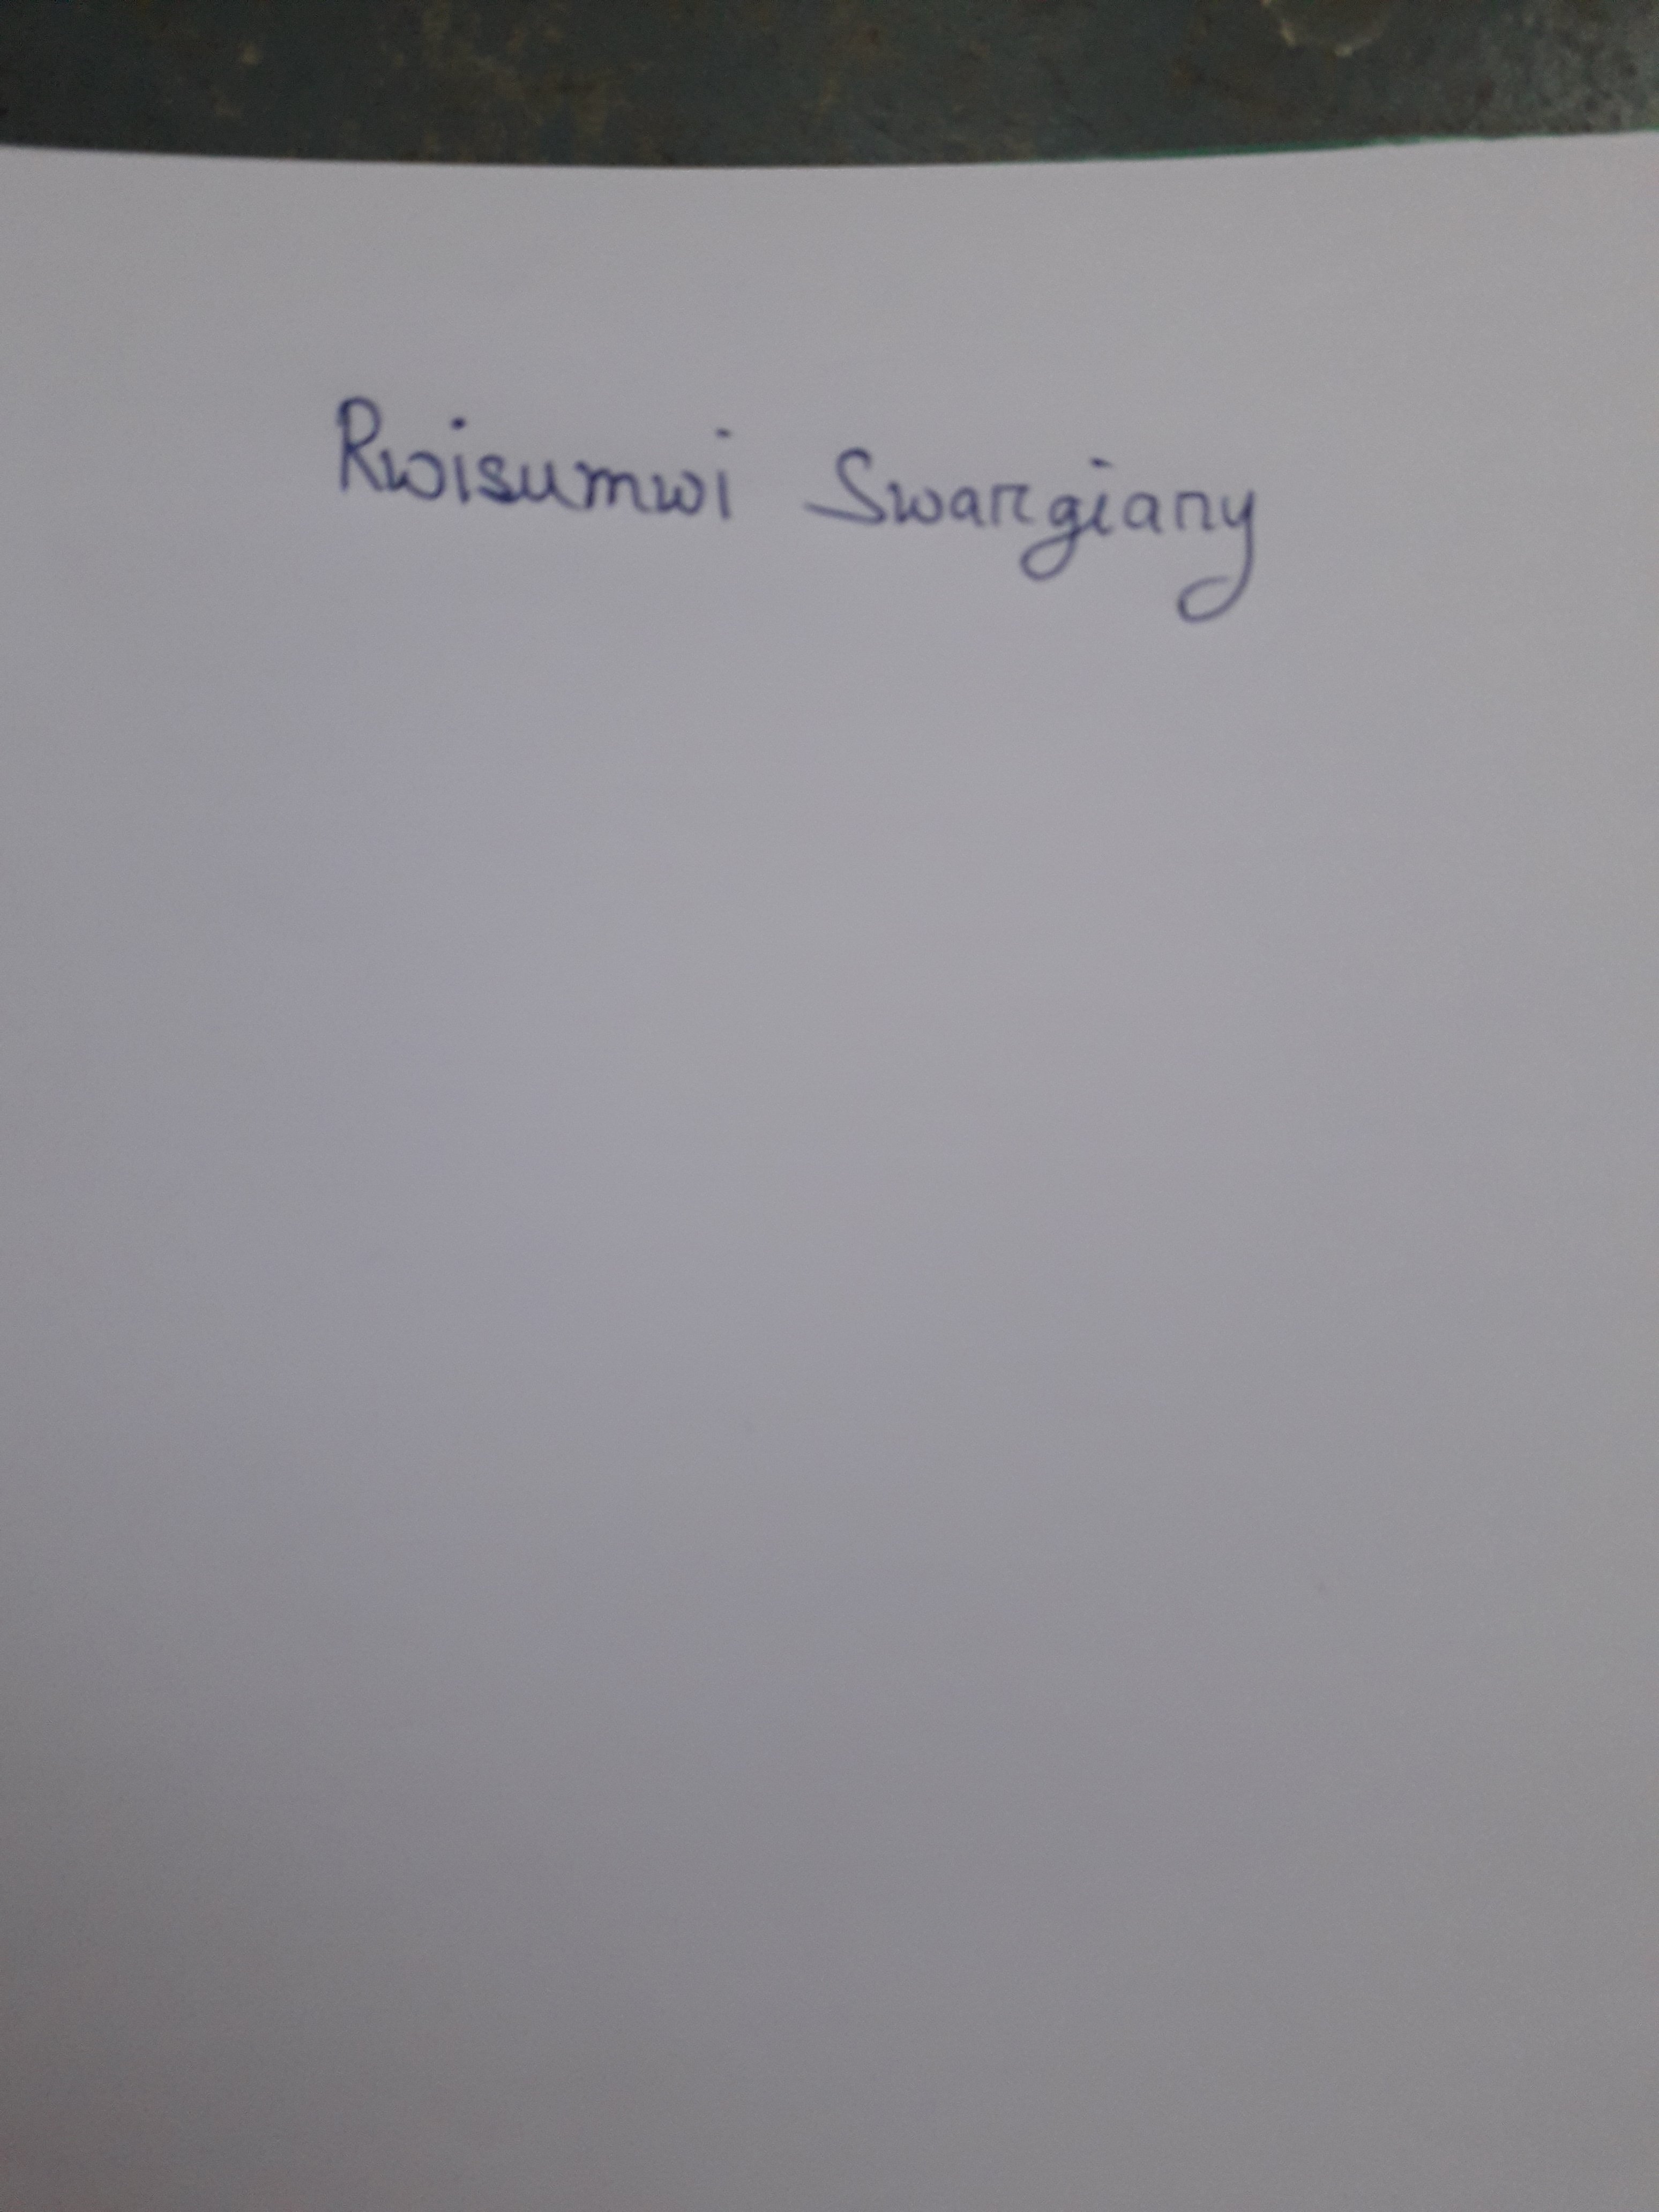 Rwisumwi Swargiary